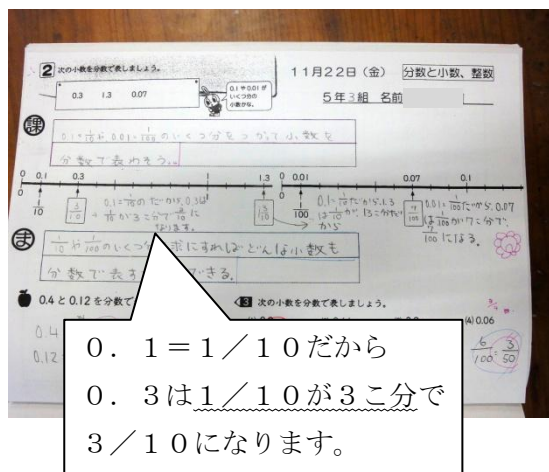 2 次の小数を分数で表しましょう。
0.3 1.3 0.07
0.1や0.01が
いくつ分の
小数かな。
11月22日(金) 分数と小数、整数
5年3組 名前
課
0.1=1/10や0.01=1/100のいくつ分をつかって小数を
分数で表わそう。
0 0.1 0.3 1 1.3 0 0.01 0.07 0.1
1/10 3/10 0.1=1/10のだから、0.3は
1/10が3こ分で3/10に
なります。
13/10 0.1=1/10だから1.3
は1/10が13こ分
だから
1/100
7/100 0.01=1/100だから、0.07
は1/100が7こ分で、
7/100になる。
ま
1/10や1/100のいくつ分 求にすればどんな小数も
分数で表す できる。
0.4と0.12を分数で
3 次の小数を分数で表しましょう。
0.4
0.12
(4) 0.06
6/100 = 3/50
0.1=1/10だから
0.3は1/10が3こ分で
3/10になります。